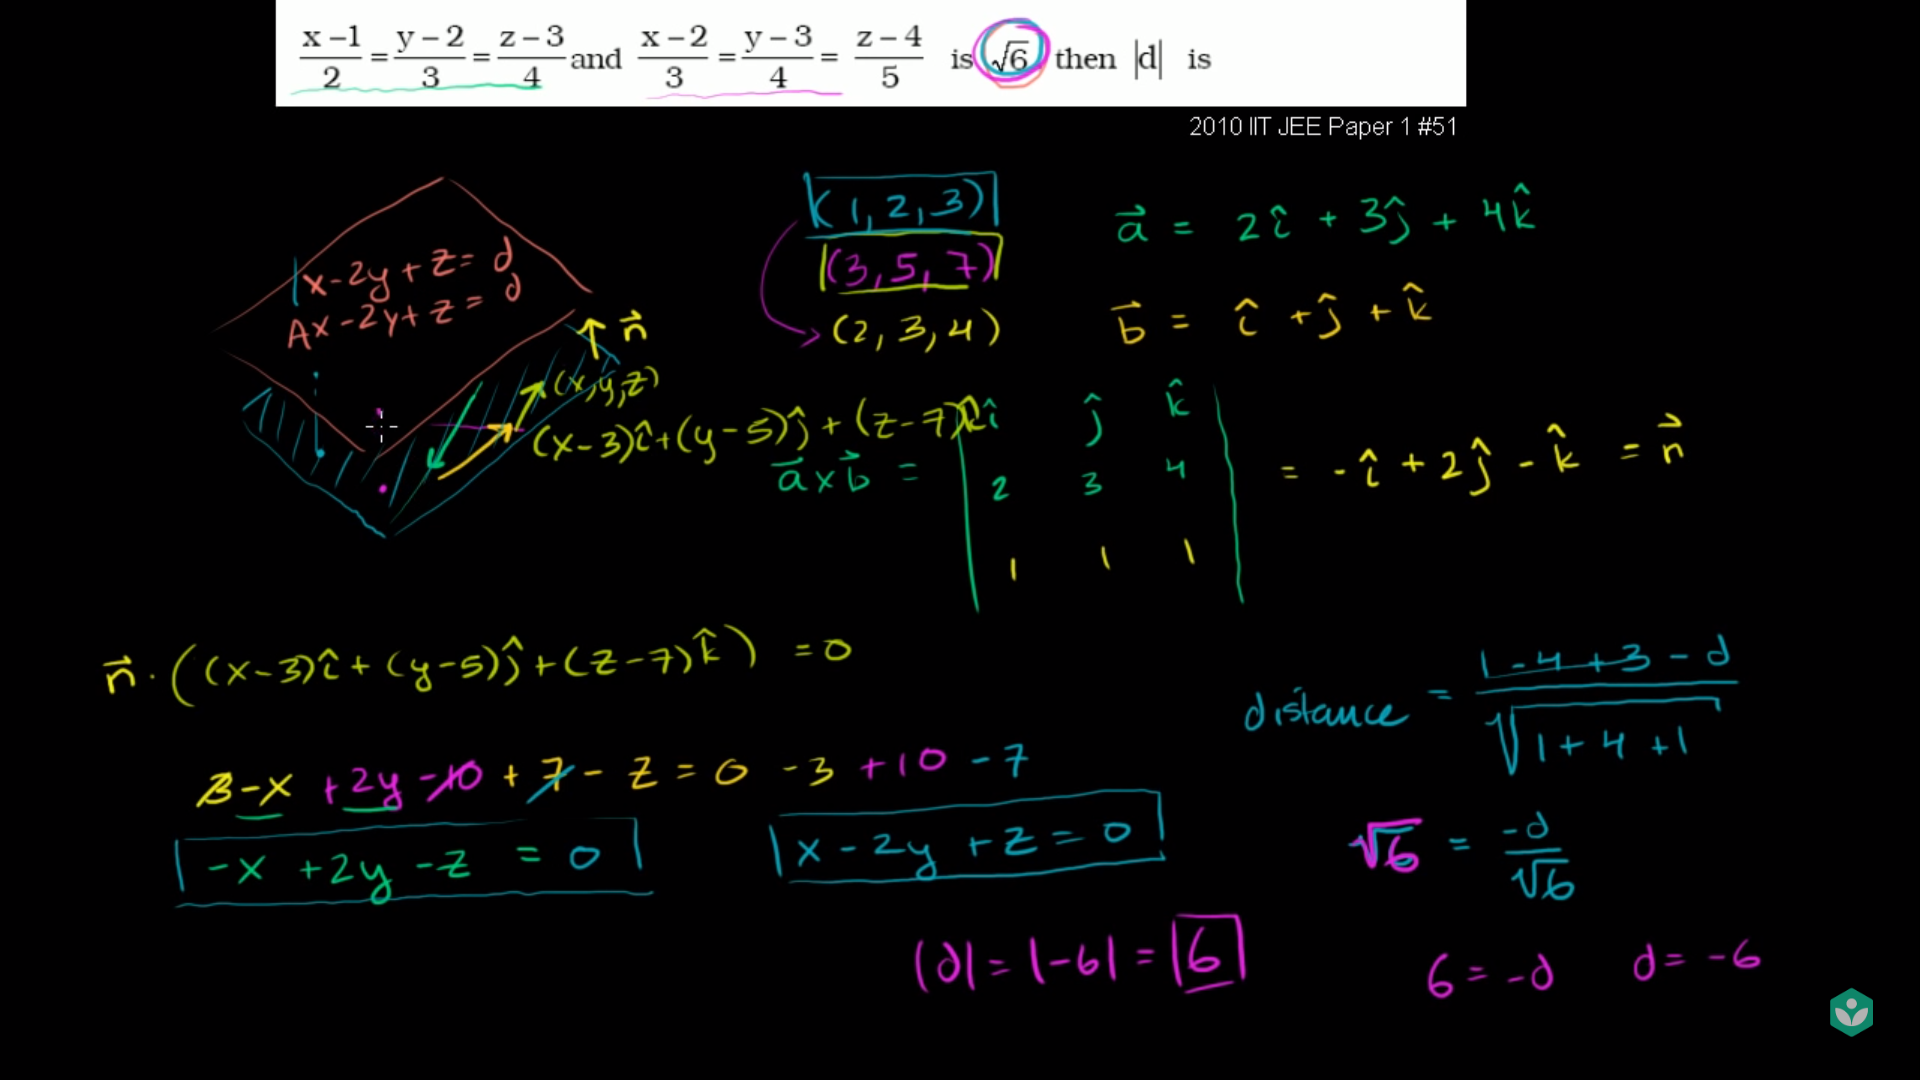 x-1/2 = y-2/3 = z-3/4 and x-2/3 = y-3/4 = z-4/5 is √6 then |d| is
2010 IIT JEE Paper 1 #51
x-2y+z= d
Ax-2y+z= d
n⃗
(x,y,z)
(x-3)î+(y-5)ĵ+(z-7)k̂
(1,2,3)
(3,5,7)
(2,3,4)
a⃗ = 2î + 3ĵ + 4k̂
b⃗ = î + ĵ + k̂
a⃗ x b⃗ =
î ĵ k̂
2 3 4
1 1 1
= -î + 2ĵ - k̂ = n⃗
n⃗ · ((x-3)î + (y-5)ĵ + (z-7)k̂) = 0
3-x +2y -10 + 7 - z = 0 -3 +10 -7
-x +2y -z = 0
x - 2y + z = 0
distance = 1-4+3-d / √1+4+1
√6 = -d/√6
6 = -d d = -6
|d| = |-6| = 6